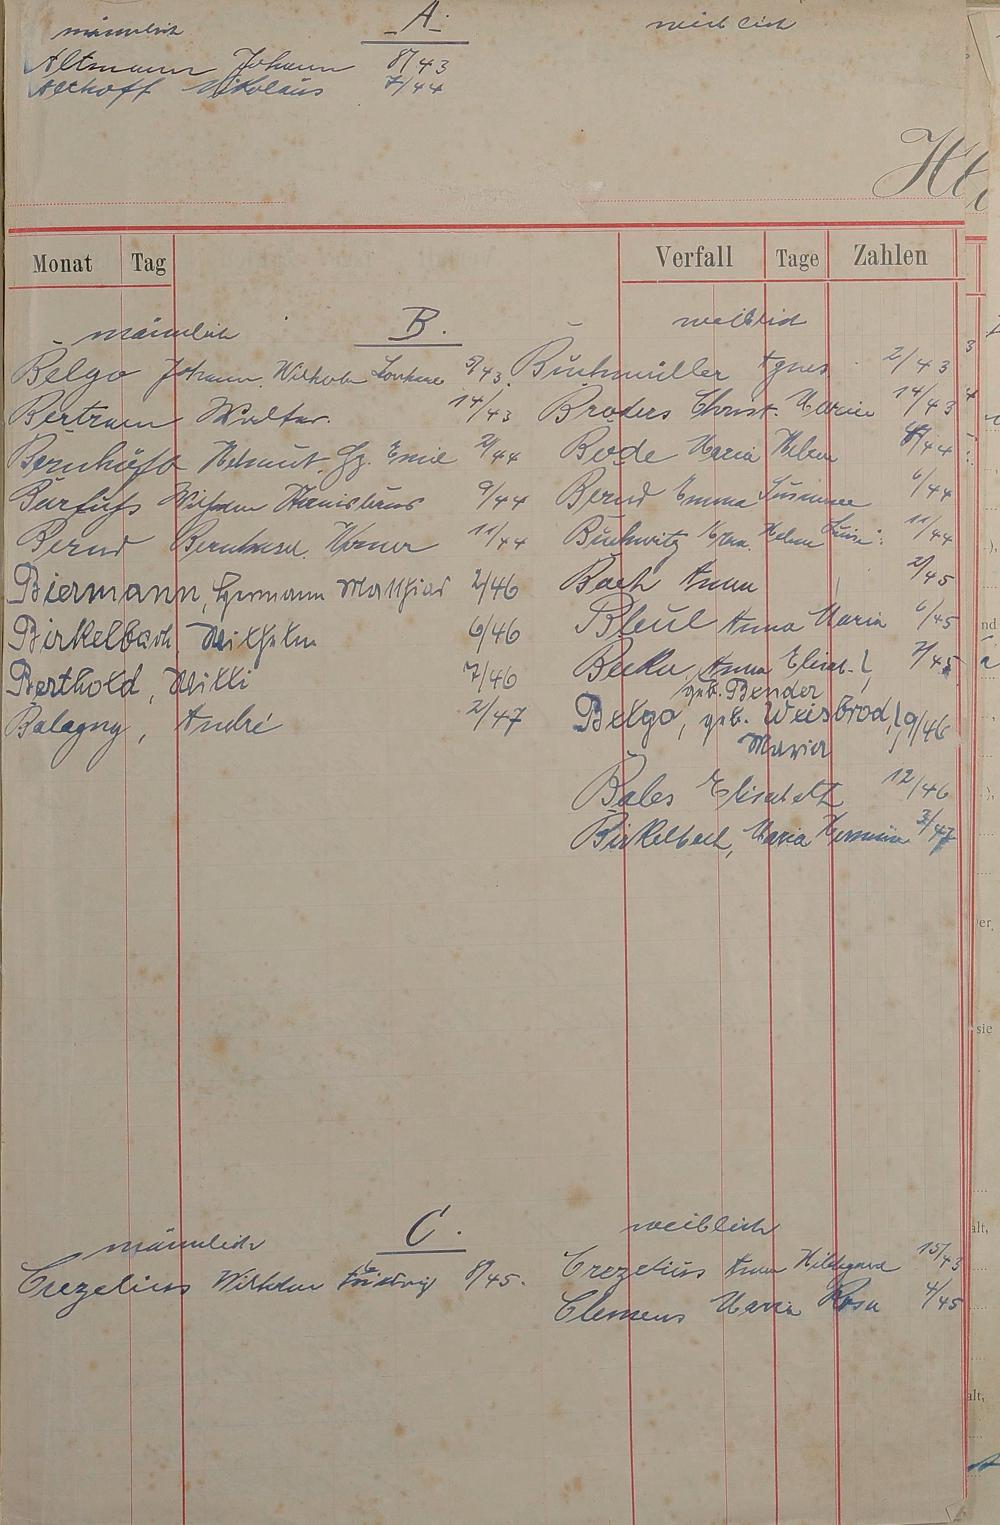 männlich -A- weiblich
Altmann Johann 8/43
Althoff Nikolaus 7/44
Monat Tag Verfall Tage Zahlen
männlich B. weiblich
Belgo Johann Wilhelm 5/43. Buchmüller Agnes 2/43
Bertram Walter. 14/43 Broders Christ. Marie 14/43
Bernhöft Helmut Gg. Emil 2/44 Bode Maria Helen /44
Burfuss Wilhelm Stanislaus 9/44 Bernd Emma Susanne 6/44
Bernd Werner 11/44 Buchwitz Erna Helene Luise 11/44
Biermann, Hermann Matthias 2/46 Bach Anna 2/45
Birkelbach Wilhelm 6/46 Bleul Anna Maria 6/45
Berthold, Willi 7/46 Becker, Anna Elisab. 7/45
geb. Bender
Balagny, André 2/47 Belgo, geb. Weisbrod, 9/46
Maria
Bales Elisabeth 12/46
Birkelbach, Maria Hermine 3/47
männlich C. weiblich
Crezelius Wilhelm Ludwig 8/45. Crezelius Anna Hildegard 15/43
Clemens Maria Rosa 4/45
nd
er,
sie
alt,
alt,